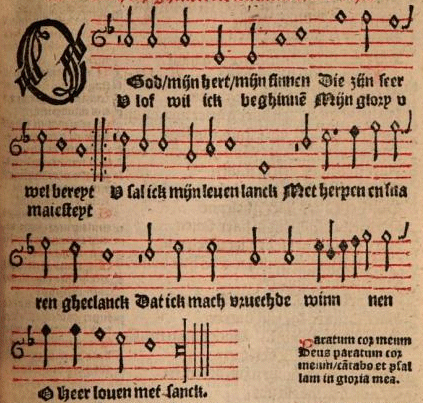 O God/mijn hert/mijn sinnen Die zijn seer
V lof wil ick beghinnē Mijn glory v
wel bereyt V sal ick mijn leuen lanck Met herpen en sna
maiesteyt
ren gheclanck Dat ick mach vruechde winn nen
O heer louen met sanck.
Paratum cor meum
Deus paratum cor
meum/cātabo et psal
lam in gloria mea.